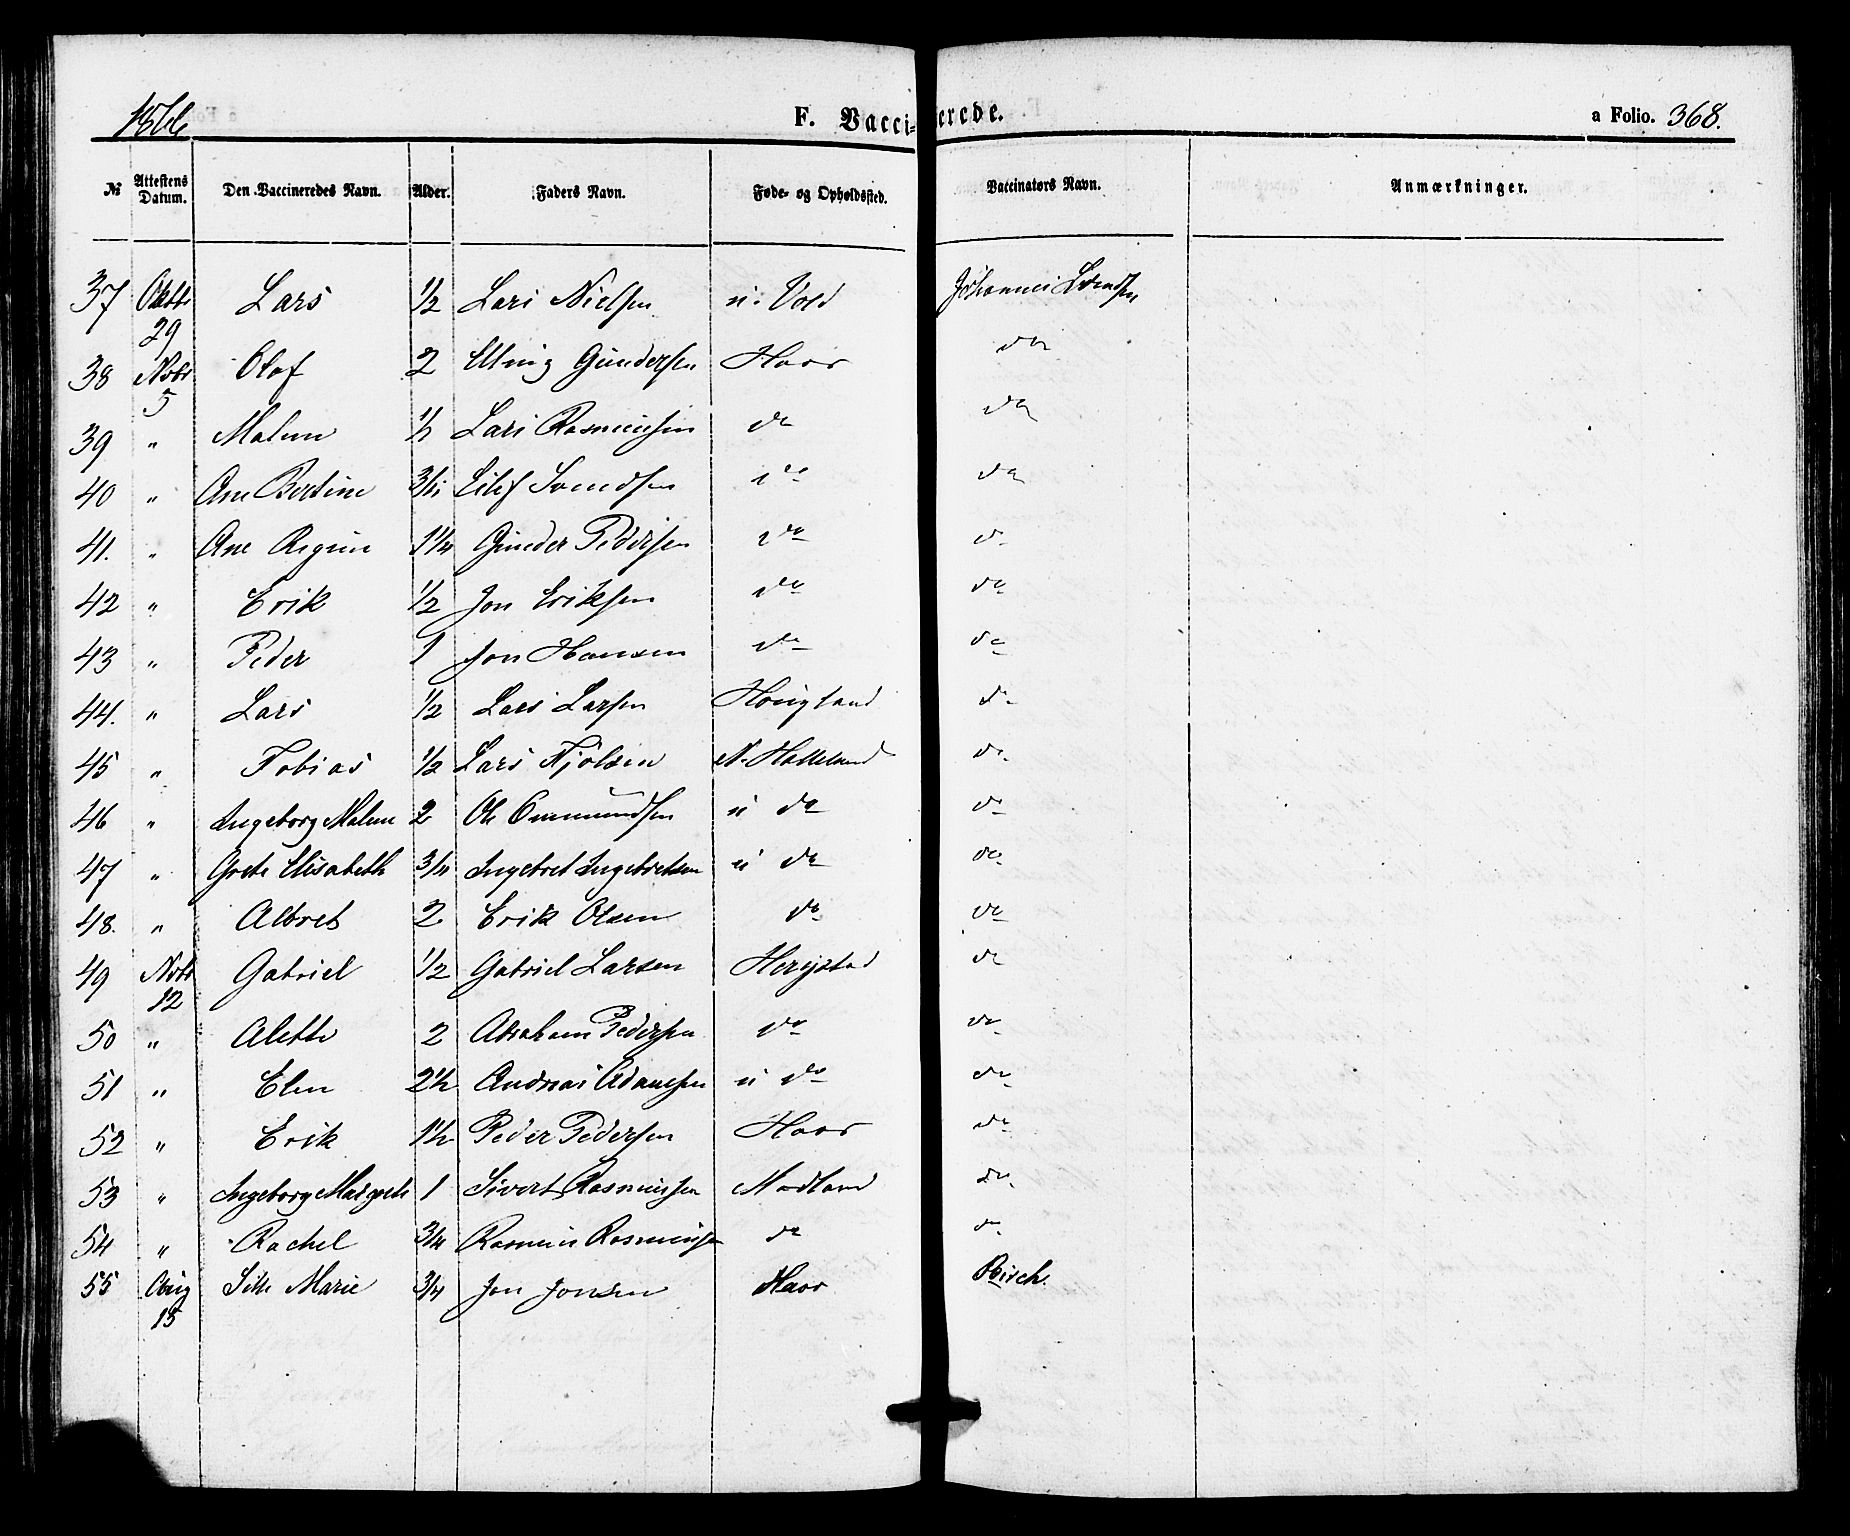 1866 F. Vaccinerede. a Folio. 368.
№ Attestens Datum. Den Vaccineredes Navn. Alder. Faders Navn. Føde- og Opholdssted. Vaccinatørs Navn. Anmærkninger.
37 Oktbr 29 Lars 1/2 Lars Nielsen u. Vold Johannes Svendsen
38 Novbr 5 Olaf 2 Elling Gundersen Haar do
39 " Malene 1/2 Lars Rasmussen do do
40 " Ane Bertine 3/4 Eilif Svendsen do do
41. " Ane Regine 1 1/4 Gunder Pedersen do do
42 " Erik 1/2 Jon Eriksen do do
43 " Peder 1 Jon Hansen do do
44. " Lars 1/2 Lars Larsen Houghland do
45 " Tobias 1/2 Lars Kjølsen N. Halleland do
46 " Ingeborg Malene 2 Ole Ommundsen u do do
47 " Grete Elisabeth 3/4 Ingebret Ingebretsen u do do
48. " Albret 2 Erik Olsen do do
49 Novbr 12 Gabriel 1/2 Gabriel Larsen Herigstad do
50 " Alette 2 Abraham Pedersen do do
51 " Elen 2 1/2 Andreas Adamsen u do do
52 " Erik 1 1/2 Peder Pedersen Haar do
53 " Ingeborg Margrete 1 Sivert Rasmussen Madland do
54 " Rachel 3/4 Rasmus Rasmussen do do
55 Aug 15 Marie 3/4 Jon Jonsen Haar Birch.